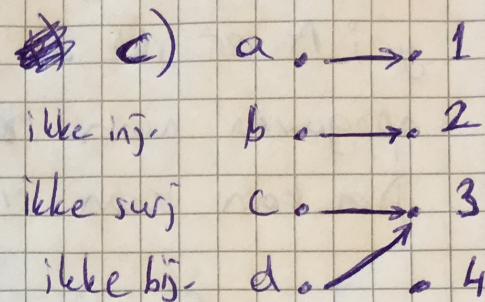 c) a 1
ikke inj. b 2
ikke surj c 3
ikke bij. d 4